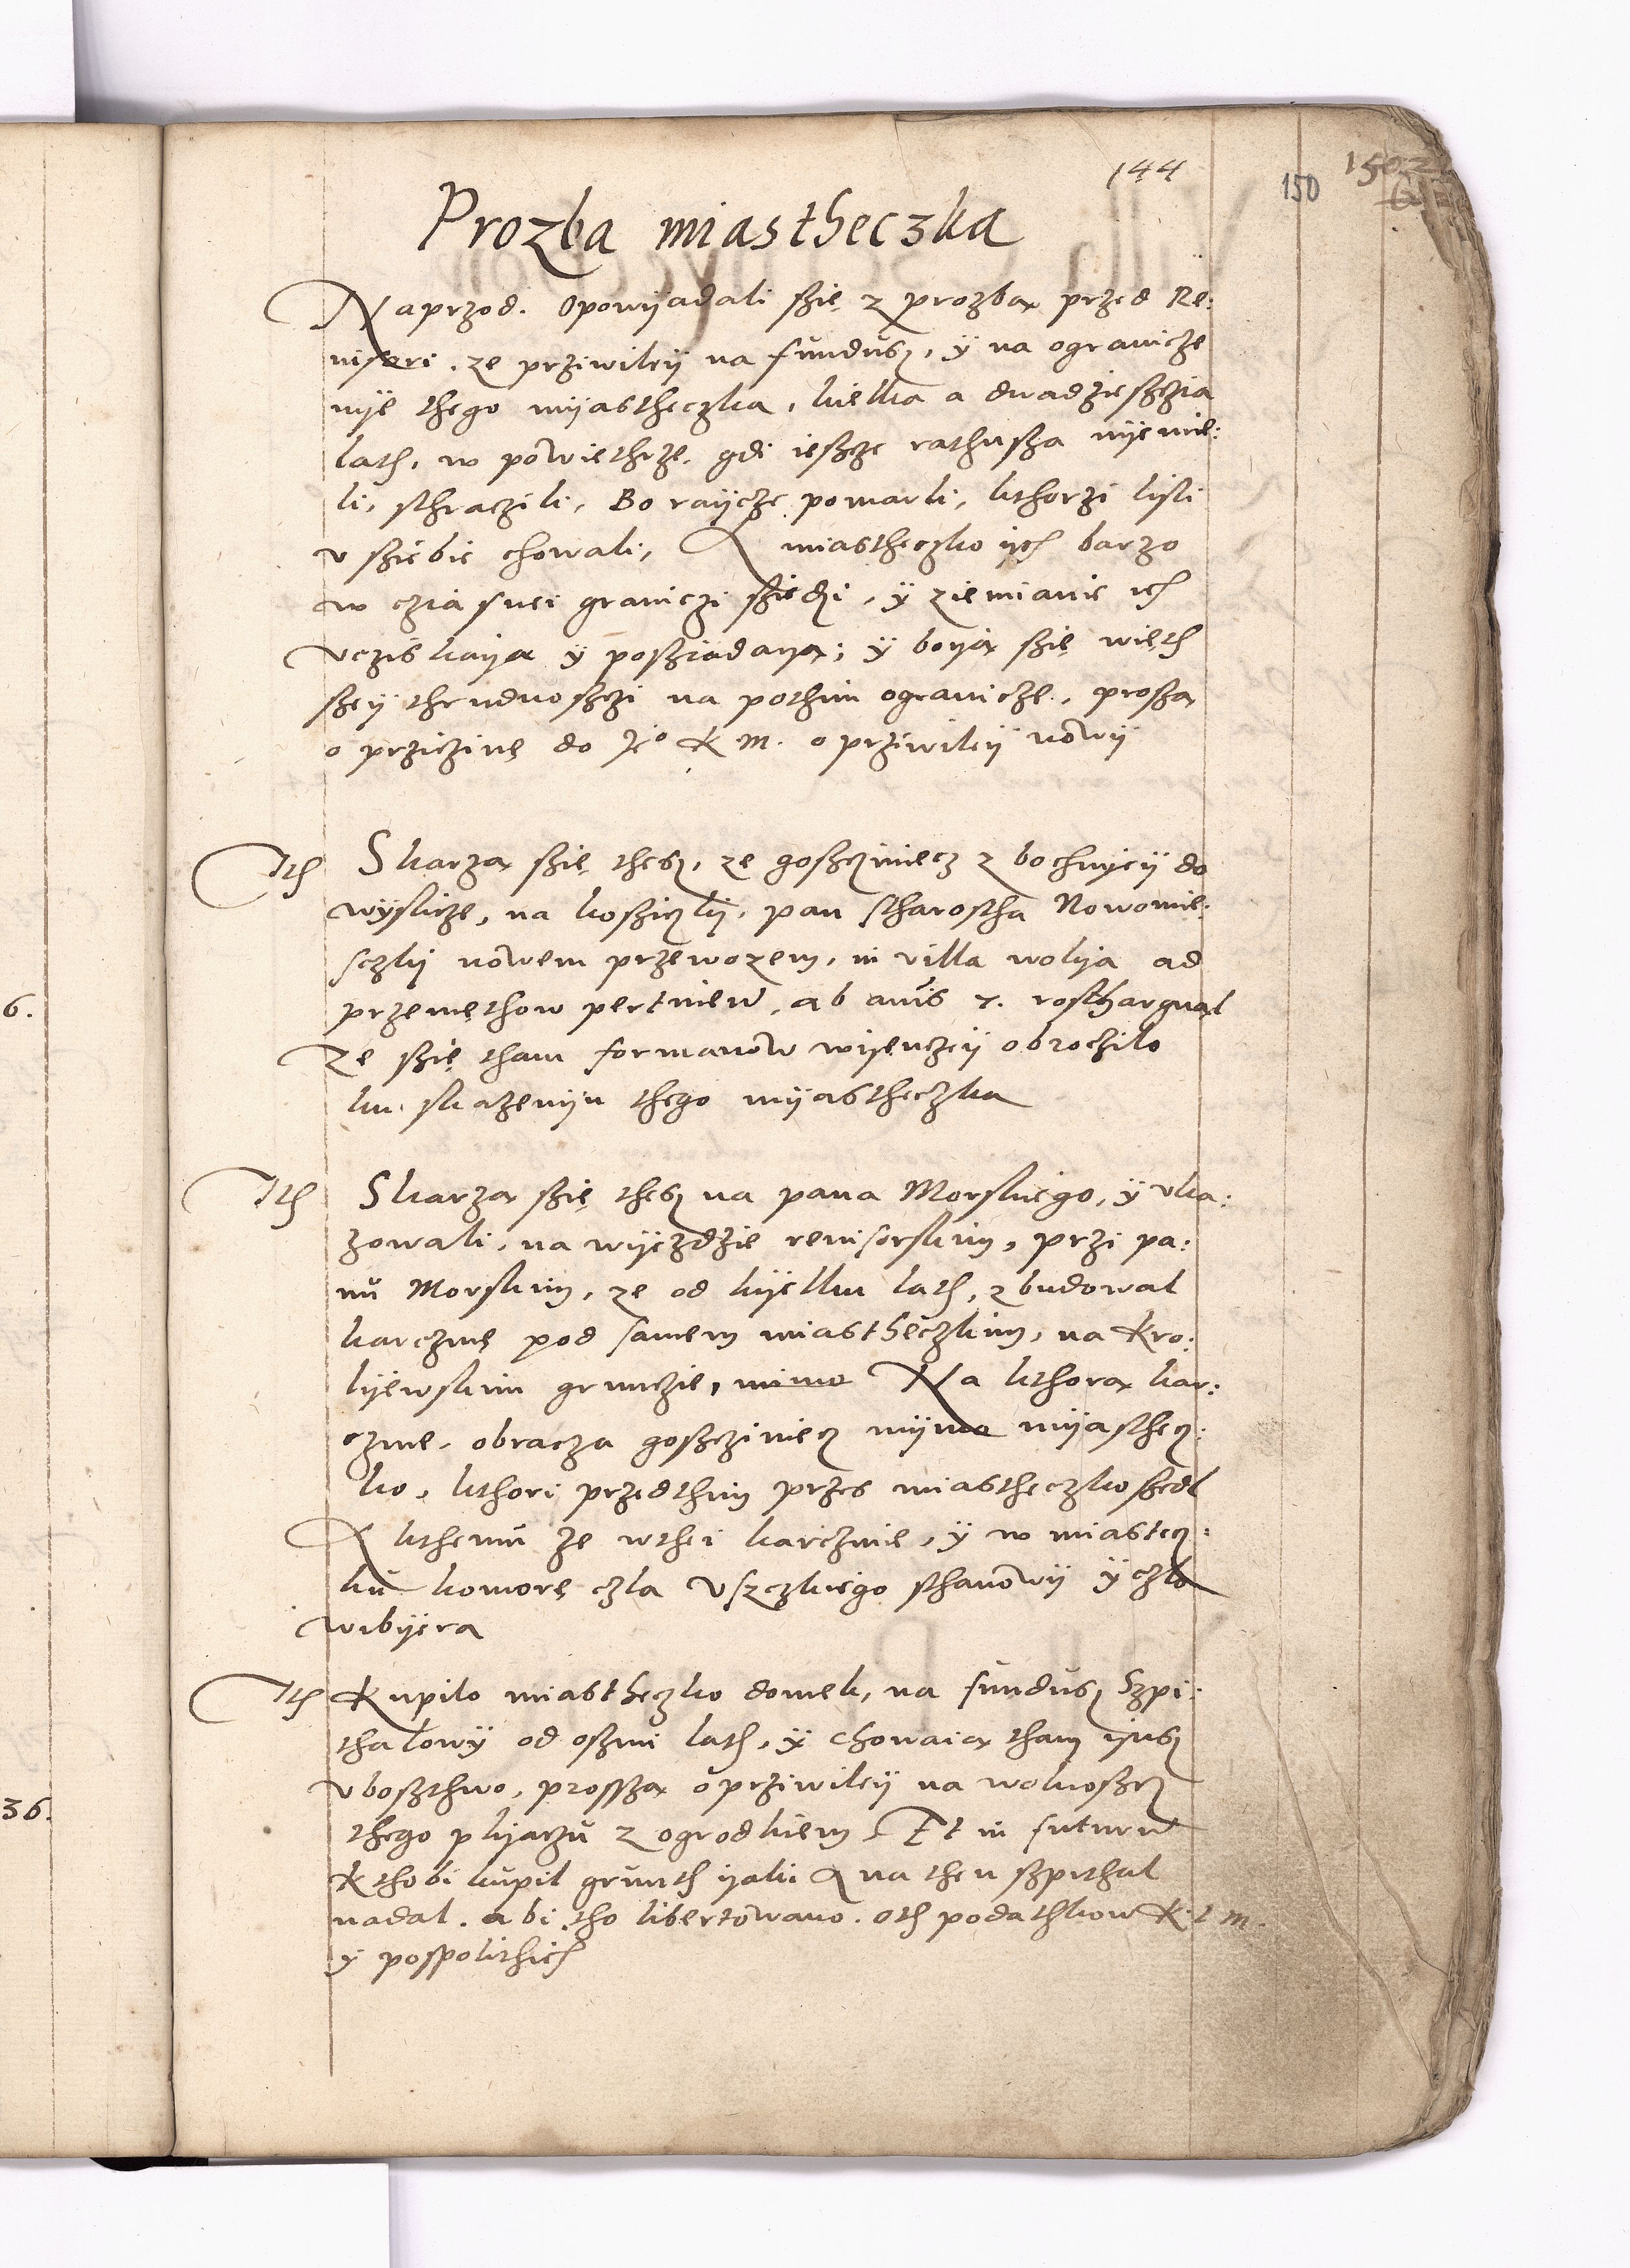 144
150
Prozba miastheczka
Naprzod. Opowyadali szię z prozbą przed Re:
wisori, ze prziwiley na fundusz, ÿ na ogranicze
nÿe thego mÿastheczka, kielka a dwadzieszczia
lath, w powiethrze, gdi ieszcze rathusza nÿemie:
li, sthraczili, Bo rayczÿ pomarli, kthorzi listi
v sziebie chowali, A miastheczko ÿch barzo
w czia snei graniczi sziedzi, ÿ ziemianie ich
vcziskaya ÿ posziadaya; ÿ boyą szię wieth
szeÿ thrudnoszczi na pothim ogranicze, proszą
o przicziną do Jeo K M. o prziwileÿ nowÿ
Ith Skarzą szię thesz, ze goszcziniecz z bochnÿcÿ do
wÿslicze, na kosziczkÿ, pan starostha Nowomie:
sczkÿ nowem przewozem, in villa wolÿa ad
przemęthow pertinen, ab annis 7. rosthargnal
Ze szię tham formanow wÿenczeÿ obrocziło
ku skazenÿu thego mÿastheczka
Ith Skarzą szię thesz na pana Morskiego, ÿ vka:
zowali, na wÿezdzie rewisorskim, przi pa:
nu Morskim, ze od kÿelku lath, zbudowal
karczmę pod samem miastheczkim, na Kro:
lÿewskim grunczie, mimo Na kthorą kar:
czme, obracza goszcziniecz mÿmo mÿasthecz:
ko, kthori przedthim przes miastheczko szedl
A kthemu że wthei karczmie, ÿ w miastecz:
ku komorę czla Vszczkiego sthanowÿ ÿ czlo
wibÿera
Ith Kupilo miastheczko domek, na fundusz Szpi:
thalowÿ od oszmi lath, ÿ chowaią tham ÿusz
vboszthwo, prosszą o prziwileÿ na wolnoszcz
thego plÿaczu z ogrodkiem. Et in futurum
Kthobi kupil grunth iaki A na then szpithal
nadal. abi tho libertowano. oth podathkow K. J. M.
ÿ pospolithich
6.
36.